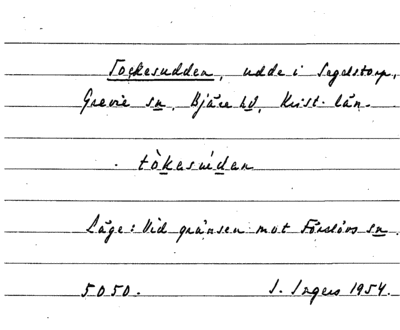 Tockesudden, udde i Segelstorp,
Grevie sn, Bjäre hd, Krist. län.
. tòkesuden
Läge: Vid gränsen mot Förslövs sn.
5050. I. Ingers 1954.